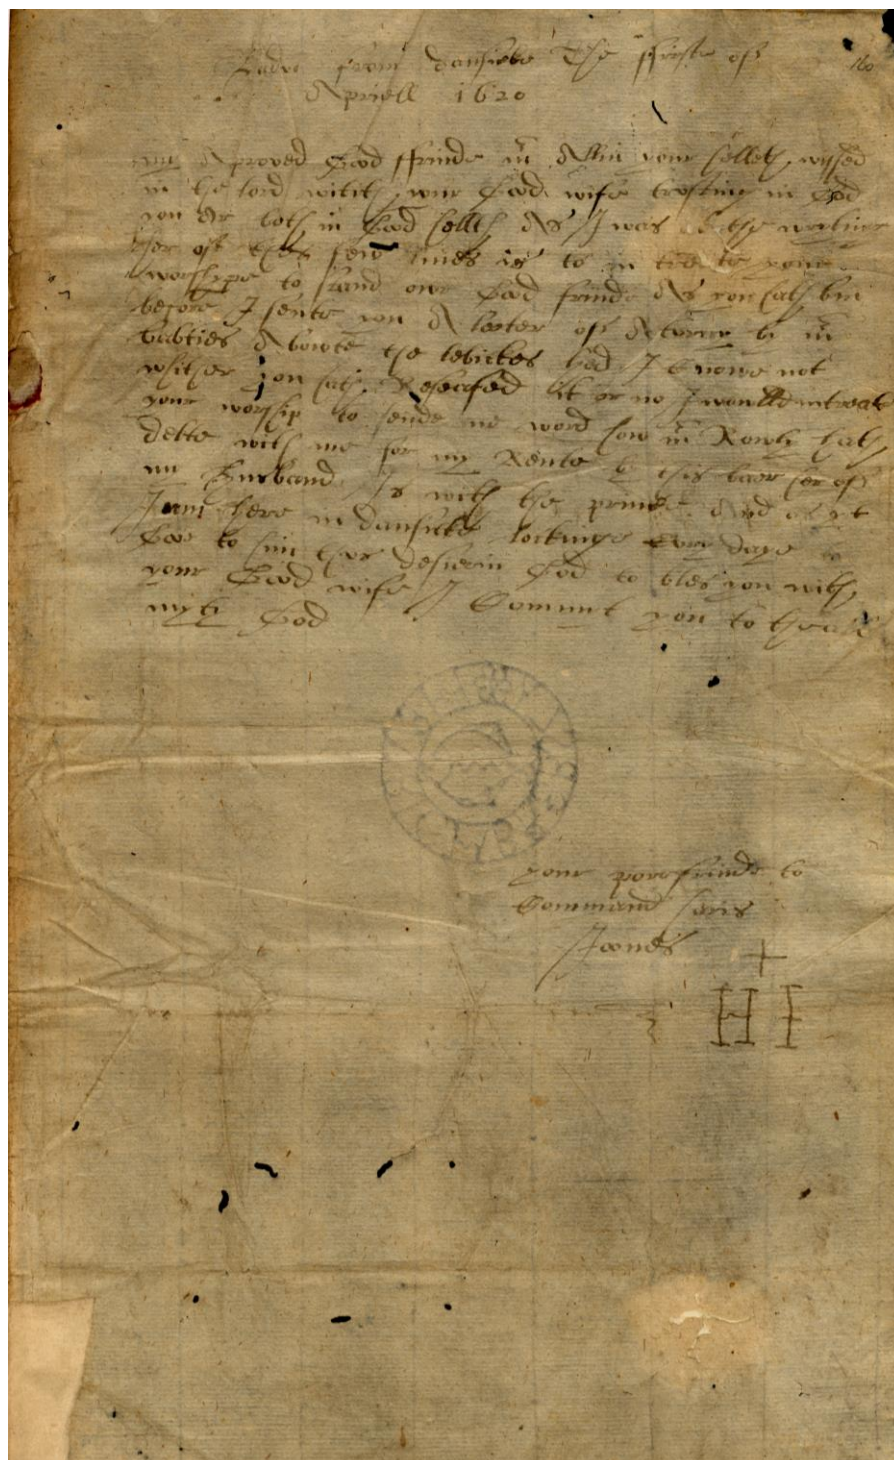 from danswke The ffirste of
Apriell 1620
160
my Aproved Good ffrinde mr Allin your helleth wyshed
in the lord witth your Good wife trosting in God
you Ar both in Good hellth As I was At the writing
her of thes few lines is to in treate your
worshype to stand our Good frinde As you hath bin
before I sente you A leetter of Atturny bi mr
Abowte the I knowe not
whither you hath Reseafed it or no I woulld intreate
your worship to sende me word how mr Rowly hath
delte with me for my Rente bi this baar her of
my husband Is with the prince And as yt
I am here in danswke lockinge Evry daye to
Goe to him thus desierin God to bles you with
your Good wife I Commit you to the all
myti God
your pore frinde to
Command
Joones
+
HI